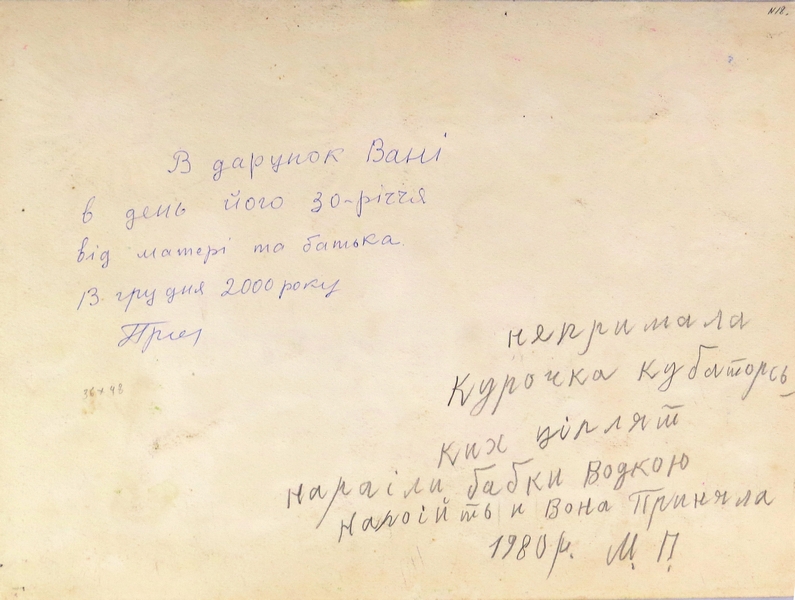 N12.
В дарунок Вані
в день його 30-річчя
від матері та батька.
13 грудня 2000 року
36 x 48
няпримала
Курочка кубаторсь_
ких ціплят
нараіли бабки Водкою
напоійть и Вона Приняла
1980 р. М. П.